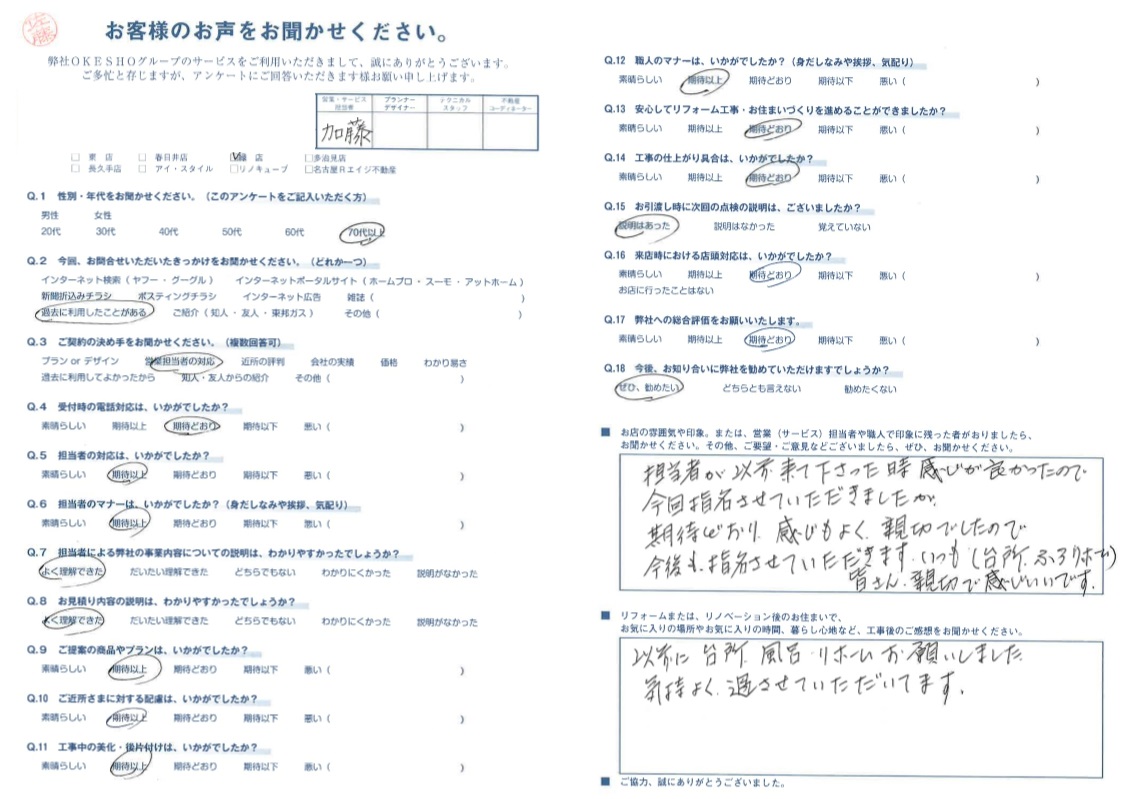 佐藤
お客様のお声をお聞かせください。
弊社OKESHOグループのサービスをご利用いただきまして、誠にありがとうございます。
ご多忙と存じますが、アンケートにご回答いただきます様お願い申し上げます。
営業・サービス 担当者 プランナー デザイナー テクニカル スタッフ 不動産 コーディネーター
加藤
□ 東 店 □ 春日井店 ☑ 店 □多治見店
□ 長久手店 □ アイ・スタイル □リノキューブ □名古屋Rエイジ不動産
Q.1 性別・年代をお聞かせください。（このアンケートをご記入いただく方）
男性 女性
20代 30代 40代 50代 60代 70代以上
Q.2 今回、お問合せいただいたきっかけをお聞かせください。（どれか一つ）
インターネット検索（ ヤフー・グーグル ） インターネットポータルサイト（ ホームプロ・スーモ・アットホーム ）
新聞折込みチラシ ポスティングチラシ インターネット広告 雑誌（ ）
過去に利用したことがある ご紹介（ 知人・友人・東邦ガス ） その他（ ）
Q.3 ご契約の決め手をお聞かせください。（複数回答可）
プラン or デザイン 営業担当者の対応 近所の評判 会社の実績 価格 わかり易さ
過去に利用してよかったから 知人・友人からの紹介 その他（ ）
Q.4 受付時の電話対応は、いかがでしたか？
素晴らしい 期待以上 期待どおり 期待以下 悪い（ ）
Q.5 担当者の対応は、いかがでしたか？
素晴らしい 期待以上 期待どおり 期待以下 悪い（ ）
Q.6 担当者のマナーは、いかがでしたか？（身だしなみや挨拶、気配り）
素晴らしい 期待以上 期待どおり 期待以下 悪い（ ）
Q.7 担当者による弊社の事業内容についての説明は、わかりやすかったでしょうか？
よく理解できた だいたい理解できた どちらでもない わかりにくかった 説明がなかった
Q.8 お見積り内容の説明は、わかりやすかったでしょうか？
よく理解できた だいたい理解できた どちらでもない わかりにくかった 説明がなかった
Q.9 ご提案の商品やプランは、いかがでしたか？
素晴らしい 期待以上 期待どおり 期待以下 悪い（ ）
Q.10 ご近所さまに対する配慮は、いかがでしたか？
素晴らしい 期待以上 期待どおり 期待以下 悪い（ ）
Q.11 工事中の美化・後片付けは、いかがでしたか？
素晴らしい 期待以上 期待どおり 期待以下 悪い（ ）
Q.12 職人のマナーは、いかがでしたか？（身だしなみや挨拶、気配り）
素晴らしい 期待以上 期待どおり 期待以下 悪い（ ）
Q.13 安心してリフォーム工事・お住まいづくりを進めることができましたか？
素晴らしい 期待以上 期待どおり 期待以下 悪い（ ）
Q.14 工事の仕上がり具合は、いかがでしたか？
素晴らしい 期待以上 期待どおり 期待以下 悪い（ ）
Q.15 お引渡し時に次回の点検の説明は、ございましたか？
説明はあった 説明はなかった 覚えていない
Q.16 来店時における店頭対応は、いかがでしたか？
素晴らしい 期待以上 期待どおり 期待以下 悪い（ ）
お店に行ったことはない
Q.17 弊社への総合評価をお願いいたします。
素晴らしい 期待以上 期待どおり 期待以下 悪い（ ）
Q.18 今後、お知り合いに弊社を勧めていただけますでしょうか？
ぜひ、勧めたい どちらとも言えない 勧めたくない
■ お店の雰囲気や印象。または、営業（サービス）担当者や職人で印象に残った者がおりましたら、
お聞かせください。その他、ご要望・ご意見などございましたら、ぜひ、お聞かせください。
担当者が以前来て下さった時感じが良かったので
今回指名させていただきましたが、
期待どおり、感じもよく、親切でしたので
今後も指名させていただきます。いつも（台所、ふろリホーム）
皆さん、親切で感じいいです。
■ リフォームまたは、リノベーション後のお住まいで、
お気に入りの場所やお気に入りの時間、暮らし心地など、工事後のご感想をお聞かせください。
以前に台所、風呂、リホームお願いしました。
気持よく、過させていただいてます。
■ ご協力、誠にありがとうございました。